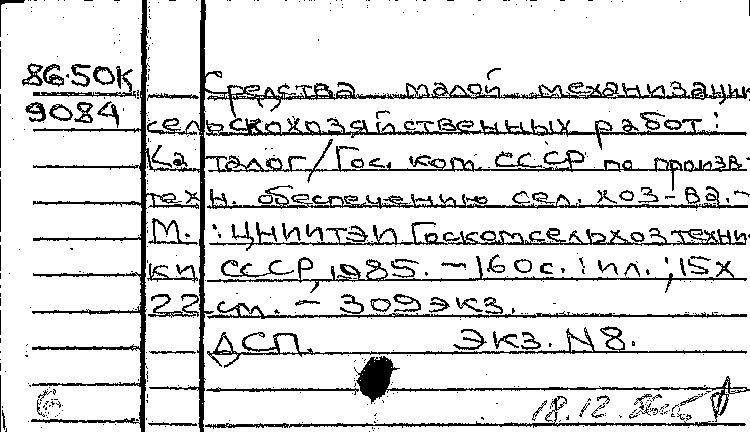 86.50К
9084
Средства малой механизации
сельскохозяйственных работ:
Каталог/Гос. ком. СССР по произв-
техн. обеспечению сел. хоз-ва.-
М.: ЦНИИТЭИ Госкомсельхозтехни-
ки СССР, 1985. - 160с.: ил.; 15х
22 см. - 309 экз.
ДСП. Экз. N8.
6 18.12.86